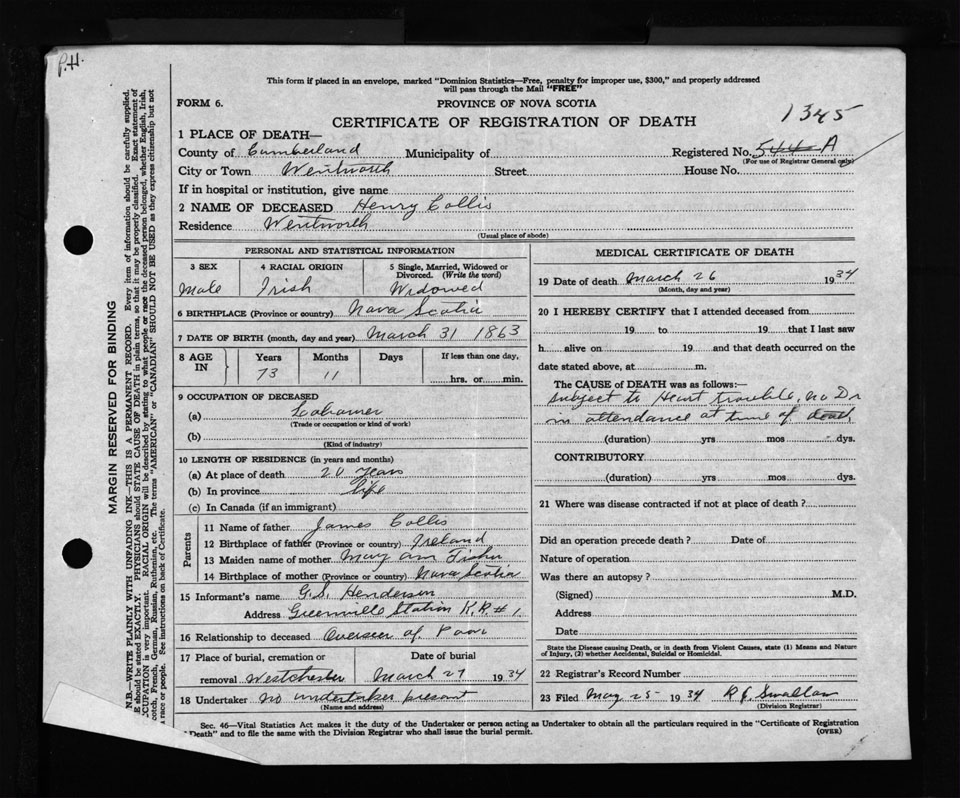 P.H.
This form if placed in an envelope, marked "Dominion Statistics—Free, penalty for improper use, $300," and properly addressed
will pass through the Mail "FREE"
FORM 6.
PROVINCE OF NOVA SCOTIA
1345
CERTIFICATE OF REGISTRATION OF DEATH
1 PLACE OF DEATH—
County of Cumberland Municipality of Registered No. 544 A
(For use of Registrar General only)
City or Town Wentworth Street House No.
If in hospital or institution, give name
2 NAME OF DECEASED Henry Collis
Residence Wentworth
(Usual place of abode)
PERSONAL AND STATISTICAL INFORMATION
3 SEX 4 RACIAL ORIGIN 5 Single, Married, Widowed or
Divorced. (Write the word)
Male Irish Widowed
6 BIRTHPLACE (Province or country) Nova Scotia
7 DATE OF BIRTH (month, day and year) March 31 1863
8 AGE IN Years Months Days If less than one day,
73 11 hrs. or min.
9 OCCUPATION OF DECEASED
(a) Labourer
(Trade or occupation or kind of work)
(b)
(Kind of industry)
10 LENGTH OF RESIDENCE (in years and months)
(a) At place of death 20 Years
(b) In province life
(c) In Canada (if an immigrant)
Parents
11 Name of father James Collis
12 Birthplace of father (Province or country) Ireland
13 Maiden name of mother Mary Ann Fisher
14 Birthplace of mother (Province or country) Nova Scotia
15 Informant's name G.S. Henderson
Address Greenville Station R.R. #1.
16 Relationship to deceased Overseer of Poor
17 Place of burial, cremation or Date of burial
removal Westchester March 27 1934
18 Undertaker No undertaker present
(Name and address)
MEDICAL CERTIFICATE OF DEATH
19 Date of death March 26 1934
(Month, day and year)
20 I HEREBY CERTIFY that I attended deceased from
19 to 19 that I last saw
h alive on 19 and that death occurred on the
date stated above, at m.
The CAUSE of DEATH was as follows:—
Subject to Heart trouble, no Dr
in attendance at time of death
(duration) yrs mos dys.
CONTRIBUTORY
(duration) yrs mos dys.
21 Where was disease contracted if not at place of death?
Did an operation precede death? Date of
Nature of operation
Was there an autopsy?
(Signed) M.D.
Address
Date
State the Disease causing Death, or in death from Violent Causes, state (1) Means and Nature
of Injury, (2) whether Accidental, Suicidal or Homicidal.
22 Registrar's Record Number
23 Filed May 25 1934 R J Swallow
(Division Registrar)
Sec. 46—Vital Statistics Act makes it the duty of the Undertaker or person acting as Undertaker to obtain all the particulars required in the "Certificate of Registration
Death" and to file the same with the Division Registrar who shall issue the burial permit. (OVER)
MARGIN RESERVED FOR BINDING
N.B.—WRITE PLAINLY WITH UNFADING INK—THIS IS A PERMANENT RECORD. Every item of information should be carefully supplied.
E should be stated EXACTLY. PHYSICIANS should STATE CAUSE OF DEATH in plain terms, so that it may be properly classified. Exact statement of
CCUPATION is very important. RACIAL ORIGIN will be described by stating to what people or race the deceased person belonged, whether English, Irish,
cotch, French, German, Russian, Ruthenian, etc. The terms "AMERICAN" or "CANADIAN" SHOULD NOT BE USED as they express citizenship but not
a race or people. See instructions on back of Certificate.